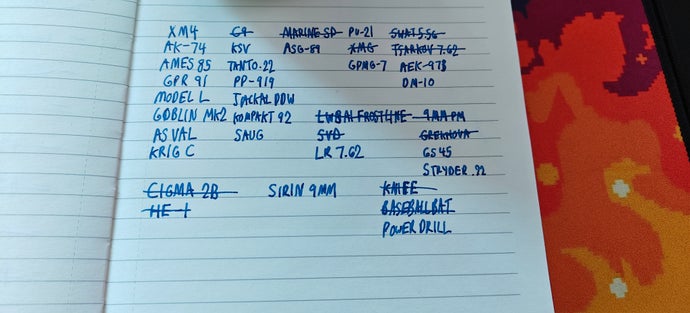 XM4 C9 MARINE SP PU-21 SWAT5.56
AK-74 KSV ASG-89 XMG TSARKOV 7.62
AMES 85 TANTO.22 GPMG-7 AEK-973
GPR 91 PP-919 DM-10
MODEL L JACKAL PDW
GOBLIN MK2 KOMPAKT 92 LW3A1 FROSTLINE 9MM PM
AS VAL SAUG SVD GREKHOVA
KRIG C LR 7.62 GS45
STRYDER .22
CIGMA 2B SIRIN 9MM KNIFE
HE-1 BASEBALL BAT
POWER DRILL